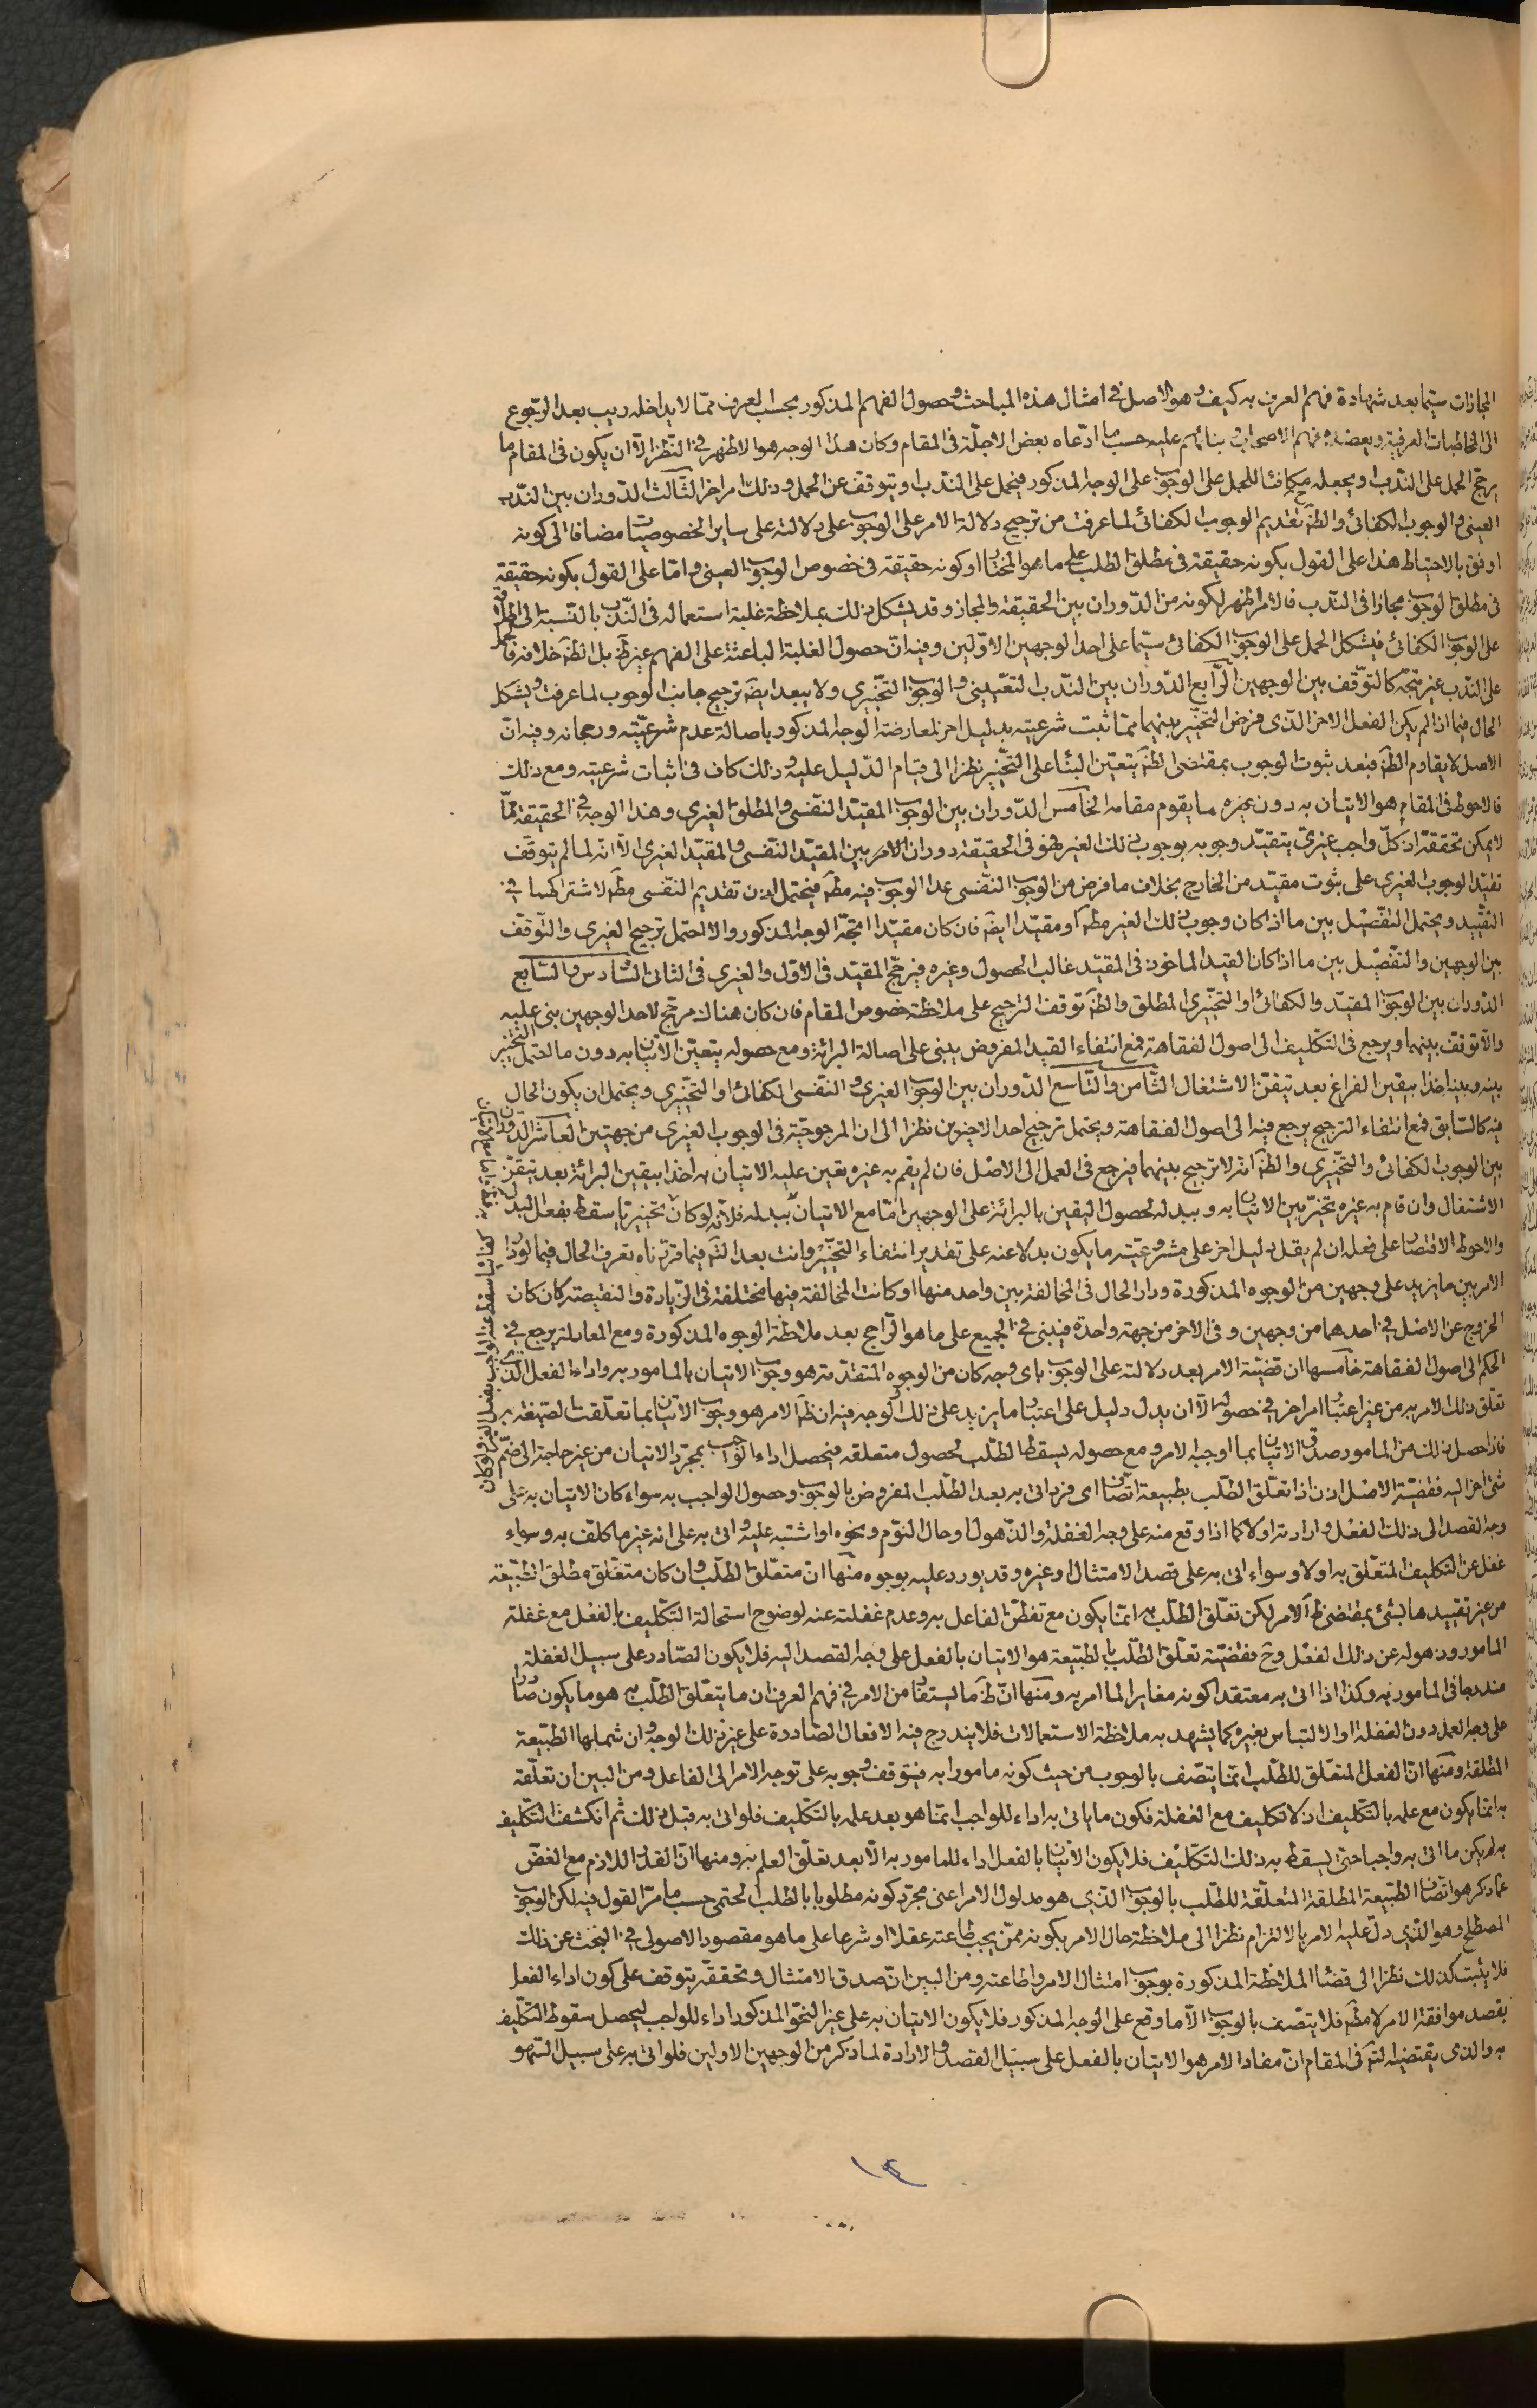 المجازات سيّما بعد شهادة فهم العرف به كيف وهو الاصل في امثال هذه المباحث وحصول الفهم المذكور بحسب العرف ممّا لا يداخله ريب بعد الرّجوع
الى المخاطبات العرفية ويعضده فهم الاصحاب وبنائهم عليه حسب ما ادّعاه بعض الاجلّة في المقام وكان هذا الوجه هو الاظهر في النّظر الّا ان يكون في المقام ما
يرجّح الحمل على النّدب او يجعله مكافئا للحمل على الوجوب على الوجه المذكور فيحمل على النّدب او يتوقف عن الحمل وذلك امر اخر الثّالث الدّوران بين النّدب
العيني والوجوب الكفائي والظّ تقديم الوجوب الكفائي لما عرفت من ترجيح دلالة الامر على الوجوب على دلالته على ساير الخصوصيّات مضافا الى كونه
اوفق بالاحتياط هذا على القول بكونه حقيقة في مطلق الطلب على ما هو المختار او كونه حقيقة في خصوص الوجوب العيني وامّا على القول بكونه حقيقة
في مطلق الوجوب مجازا في النّدب فالامر اظهر لكونه من الدّوران بين الحقيقة والمجاز وقد يشكل ذلك بملاحظة غلبة استعماله في النّدب بالنّسبة الى اطلاقه
على الوجوب الكفائي فيشكل الحمل على الوجوب الكفائي سيّما على احد الوجهين الاوّلين وفيه انّ حصول الغلبة الباعثة على الفهم غير ظّ بل الظّ خلافه فالحمل
على النّدب غير متّجه كالتوّقف بين الوجهين الرّابع الدّوران بين النّدب التعّييني والوجوب التخّييري ولا يبعد ايضّ ترجيح جانب الوجوب لما عرفت ويشكل
الحال فيما اذا لم يكن الفعل الاخر الذّى فرض التخّيير بينهما ممّا ثبت شرعيته بدليل اخر لمعارضة الوجه المذكور باصالة عدم شرعيّته ورجحانه وفيه انّ
الاصل لا يقاوم الظّ فبعد ثبوت الوجوب بمقتضى الظّ يتعيّن البناء على التخّيير نظرا الى قيام الدّليل عليه وذلك كاف في اثبات شرعيته ومع ذلك
فالاحوط في المقام هو الاتيان به دون غيره ما يقوم مقامه الخامس الدّوران بين الوجوب المقيّد النّفسى والمطلق الغيرى وهذا الوجه في الحقيقة ممّا
لا يمكن تحققّه اذ كلّ واجب غيرىّ يتقيّد وجوبه بوجوب ذلك الغير فهو في الحقيقة دوران الامر بين المقيّد النّفسى والمقيّد الغيرى الّا انّه لما لم يتوقف
تقيّد الوجوب الغيرى على ثبوت مقيّد من الخارج بخلاف ما فرض من الوجوب النّفسى عدا الوجوب فيه مطّ فيحتمل اذن تقديم النّفسى مطّ لاشتراكهما في
التقّييد ويحتمل التفّصيل بين ما اذا كان وجوب ذلك الغير مطّ او مقيّدا ايضّ فان كان مقيّدا اتجّه الوجه المذكور والّا احتمل ترجيح الغيرى والتوّقف
بين الوجهين والتفّصيل بين ما اذا كان القيد الماخوذ في المقيّد غالب الحصول وغيره فيرجّح المقيّد في الاوّل والغيرى في الثانى السّادس والسّابع
الدّوران بين الوجوب المقيّد والكفائى او التخّييرى المطلق والظّ توقف الترجيح على ملاحظة خصوص المقام فان كان هناك مرجّح لاحد الوجهين بنى عليه
والّا توقف بينهما ويرجع في التّكليف الى اصول الفقاهة فمع انتفاء القيد المفروض يبنى على اصالة البرائة ومع حصوله يتعيّن الاتيان به دون ما احتمل التخّيير
بينه وبينه اخذا بيقين الفراغ بعد تيقّن الاشتغال الثّامن والتّاسع الدّوران بين الوجوب الغيرى والنّفسى الكفائى او التخّييرى ويحتمل ان يكون الحال
فيه كالسّابق فمع انتفاء التّرجيح يرجع فيه الى اصول الفقاهة ويحتمل ترجيح احد الاخيرين نظرا الى ان المرجوحيّة في الوجوب الغيرى من جهتين العاشر الدّوران
بين الوجوب الكفائى والتخّييرى والظّ انّه لا ترجيح بينهما فيرجع في العمل الى الاصل فان لم يقم به غيره تعين عليه الاتيان به اخذا بيقين البرائة بعد تيقّن
الاشتغال وان قام به غيره تخيّر بين الاتيان به وببدله لحصول اليقين بالبرائة على الوجهين امّا مع الاتيان ببدله فلانّه لو كان تخييريّا سقط بفعل البدل
والاحوط الاقتصار على فعله ان لم يقل دليل اخر على مشروعيّته ما يكون بدلا عنه على تقدير انتفاء التخّيير وانت بعد التّم فيما قرّرناه تعرف الحال فيما لو دار
الامر بين ما يزيد على وجهين من الوجوه المذكورة ودار الحال في المخالفة بين واحد منها او كانت المخالفة فيها مختلفة في الزّيادة والنقيصة كان كان
الخروج عن الاصل في احدهما من وجهين وفي الاخر من جهة واحدة فيبنى في الجميع على ما هو الرّاجح بعد ملاحظة الوجوه المذكورة ومع المعادلة يرجع في
الحكم الى اصول الفقاهة خامسها ان قضيّة الامر بعد دلالته على الوجوب باى وجه كان من الوجوه المتقدّمة هو وجوب الاتيان بالمامور به واداء الفعل الذّى
تعلّق ذلك الامر به من غير اعتبار امر اخر في حصوله الّا ان يدل دليل على اعتبار ما يزيد على ذلك والوجه فيه ان ظّ الامر هو وجوب الاتيان بما تعلّقت الصّيغة به
فاذا حصل ذلك من المامور صدق الاتيان بما اوجبه الامر ومع حصوله يسقط الطّلب لحصول متعلقه فيحصل اداء الواجب بمجرّد الاتيان من غير حاجة الى ضمّ
شئ اخر اليه فقضيّة الاصل اذن اذا تعلّق الطّلب بطبيعة اتصّاف اى فرد اتى به بعد الطّلب المفروض بالوجوب وحصول الواجب به سواء كان الاتيان به على
وجه القصد الى ذلك الفعل وارادته او لا كما اذا وقع منه على وجه الغفلة والذّهول او حال النّوم ونحوه او اشتبه عليه واتى به على انه غير ما كلّف به وسواء
غفل عن التّكليف المتعلّق به او لا وسواء اتى به على قصد الامتثال او غيره وقد يورد عليه بوجوه منها انّ متعلّق الطّلب وان كان متعّلق مطلق الطّبيعة
من غير تقييدها بشئ بمقتضى ظّ الامر لكن تعلّق الطّلب به انمّا يكون مع تفطّن الفاعل به وعدم غفلته عنه لوضوح استحالة التّكليف بالفعل مع غفلة
المامور وذهوله عن ذلك الفعل وحّ فقضيّة تعلّق الطّلب بالطبّيعة هو الاتيان بالفعل على وجه القصد اليه فلا يكون الصّادر على سبيل الغفلة
مندرجا في المامور به وكذا اذا اتى به معتقدا كونه مغايرا لما امر به ومنها انّ ظّ ما يستفاد من الامر في فهم العرف ان ما يتعلّق الطّلب به هو ما يكون صادرا
على وجه العمد دون الغفلة او الالتباس بغيره كما يشهد به ملاحظة الاستعمالات فلا يندرج فيه الافعال الصّادرة على غير ذلك الوجه وان شملها الطّبيعة
المطلقة ومنها انّ الفعل المتعلّق للطّلب انمّا يتصّف بالوجوب من حيث كونه مامورا به فيتوقف وجوبه على توجه الامر الى الفاعل ومن البين ان تعلّقه
به انمّا يكون مع علمه بالتّكليف اذ لا تكليف مع الغفلة فكون ما ياتى به اداء للواجب انمّا هو بعد علمه بالتّكليف فلو اتى به قبل ذلك ثم انكشف التّكليف
به لم يكن ما اتى به واجبا حتى يسقط به ذلك التّكليف فلا يكون الاتيان بالفعل اداء للمامور به الّا بعد تعلّق العلم به ومنها انّ القدر اللازم مع الغضّ
عمّا ذكر هو اتصّاف الطّبيعة المطلقة المتعلّقة للطّلب بالوجوب الذّى هو مدلول الامر اعنى مجرّد كونه مطلوبا بالطلب الحتمى حسب ما مرّ القول فيه لكن الوجوب
المصطلح وهو الذّى دلّ عليه الامر بالالتزام نظرا الى ملاحظة حال الامر بكونه ممّن يجب طاعته عقلا او شرعا على ما هو مقصود الاصولى في البحث عن ذلك
فلا يثبت كذلك نظرا الى قضاء الملاحظة المذكورة بوجوب امتثال الامر واطاعته ومن البين انّ صدق الامتثال وتحققّه يتوقف على كون اداء الفعل
بقصد موافقة الامر لا مطّ فلا يتصّف بالوجوب الّا ما وقع على الوجه المذكور فلا يكون الاتيان به على غير النّحو المذكور اداء للواجب ليحصل سقوط التّكليف
به والذى يقتضيه التّم في المقام انّ مفاد الامر هو الاتيان بالفعل على سبيل القصد والارادة لما ذكر من الوجهين الاولين فلو اتى به على سبيل السّهو
١٤